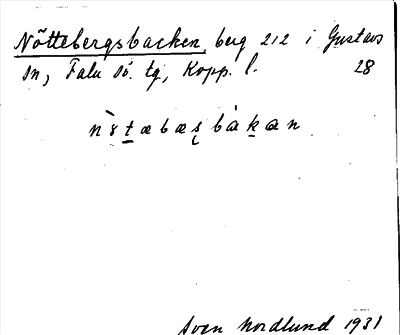 Nöttebergsbacken, berg 212 i Gustavs
sn, Falu sö. tg, Kopp. l. 28
Sven Nordlund 1931